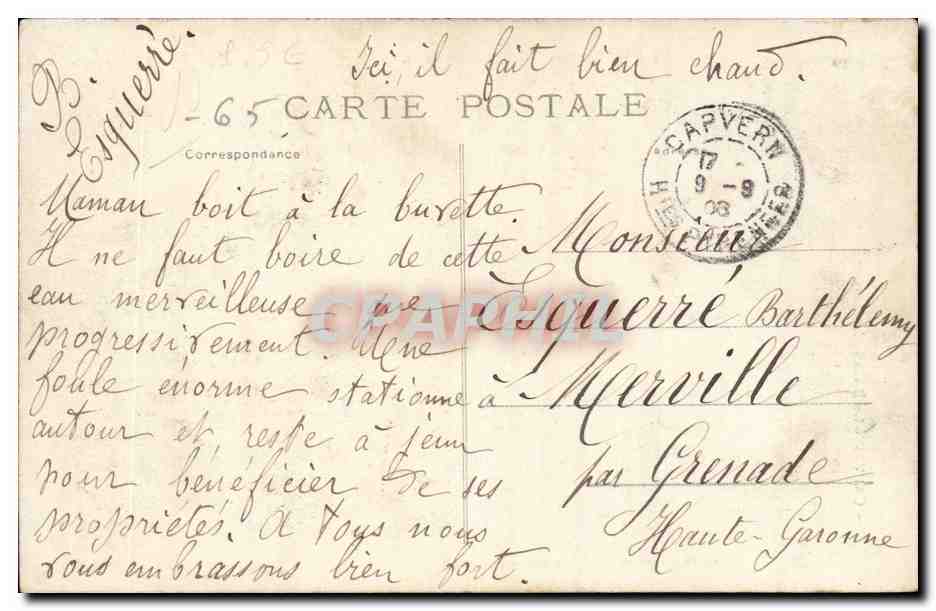 Ici, il fait bien chaud.
B. Esquerré.
-65
CARTE POSTALE
Correspondance
CAPVERN
17
9-9
08
Htes PYRENNEES
Maman boit à la buvette.
Il ne faut boire de cette
eau merveilleuse que
progressivement. Une
foule énorme stationne
autour et reste à jeun
pour bénéficier de ses
propriétés. A tous nous
vous embrassons bien fort.
Monsieur
Esquerré Barthélemy
à Merville
par Grenade
Haute-Garonne
CPAPHIL